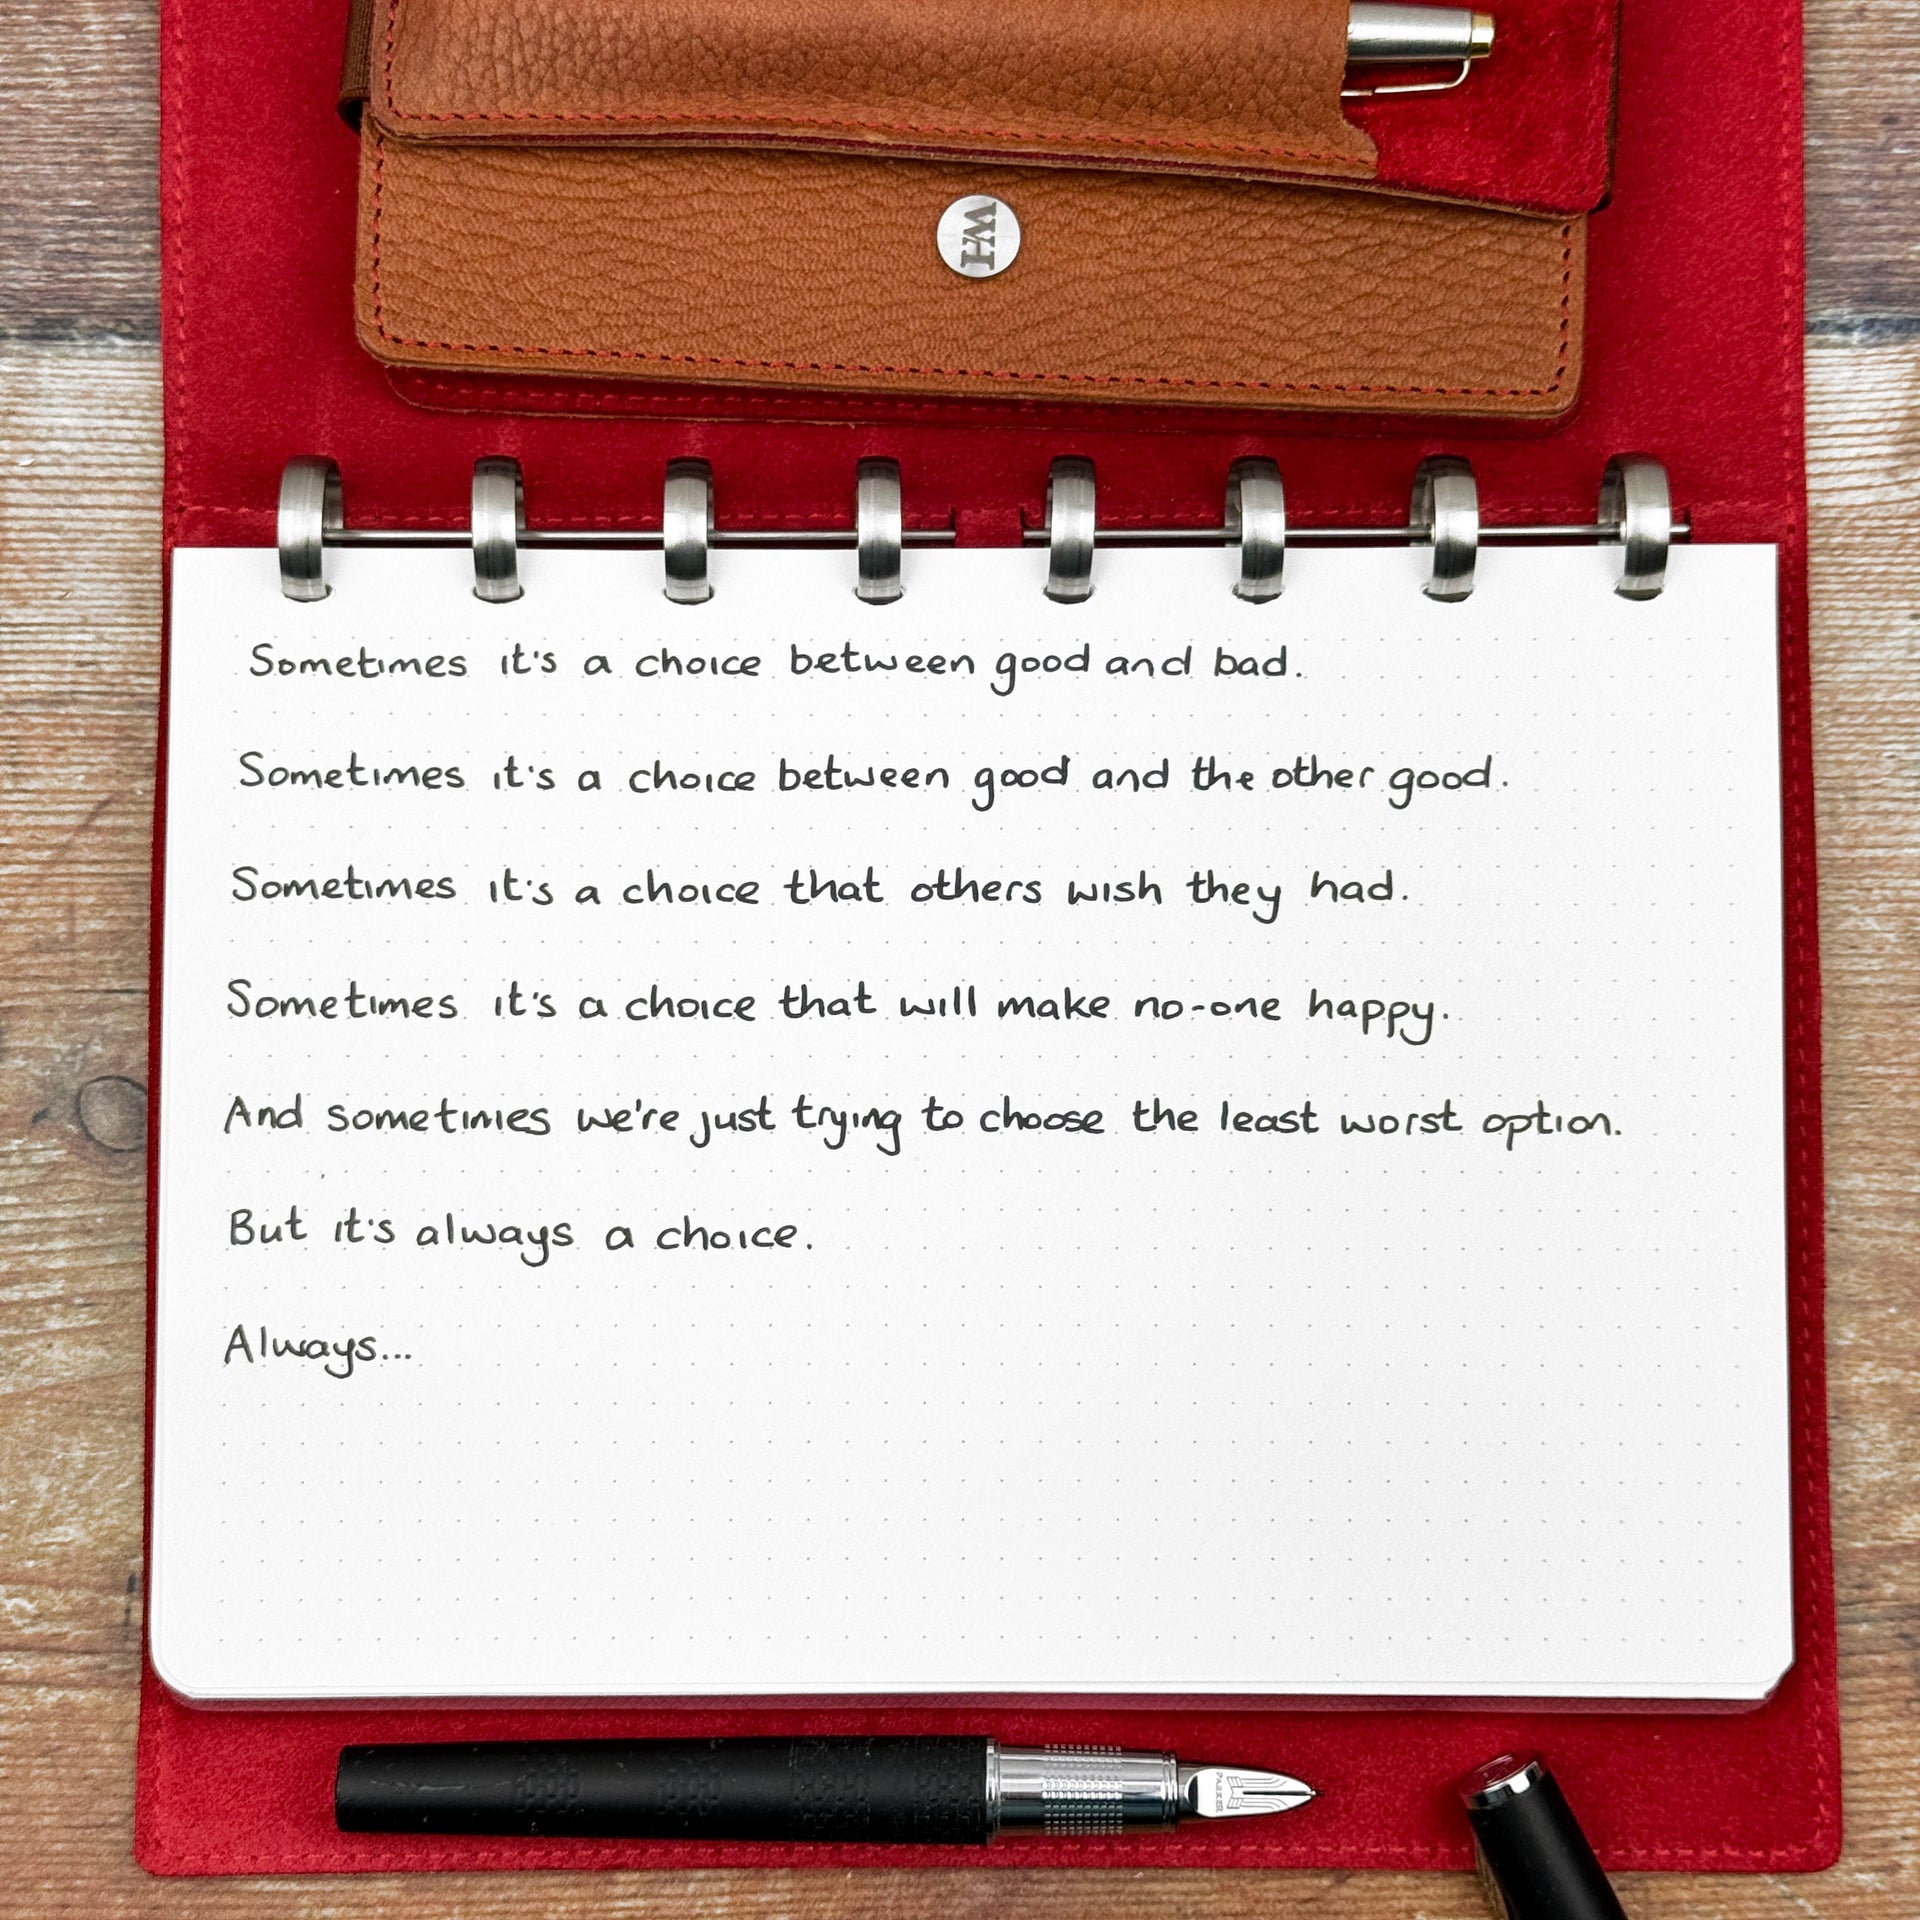 WH
Sometimes it's a choice between good and bad.
Sometimes it's a choice between good and the other good.
Sometimes it's a choice that others wish they had.
Sometimes it's a choice that will make no-one happy.
And sometimes we're just trying to choose the least worst option.
But it's always a choice.
Always...
PARKER